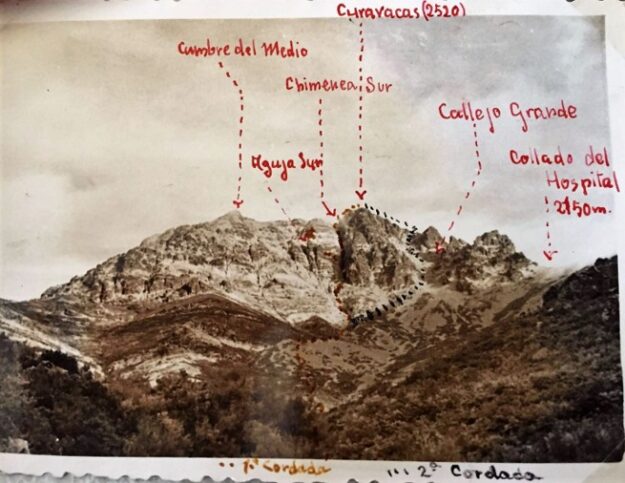 Curavacas (2520)
Cumbre del Medio
Chimenea Sur
Callejo Grande
Aguja Sur
Collado del
Hospital
2150 m.
1ª Cordada
2ª Cordada